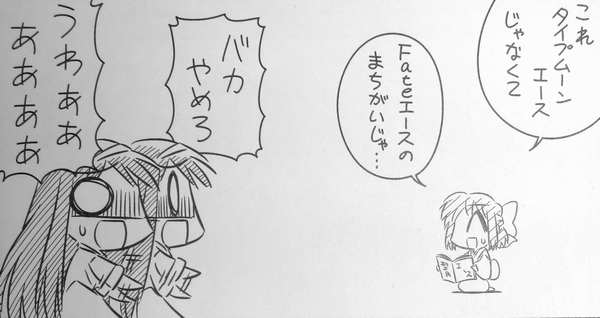 これ
タイプムーン
エース
じゃなくて
Fateエースの
まちがいじゃ…
バカ
やめろ
うわああ
ああああ